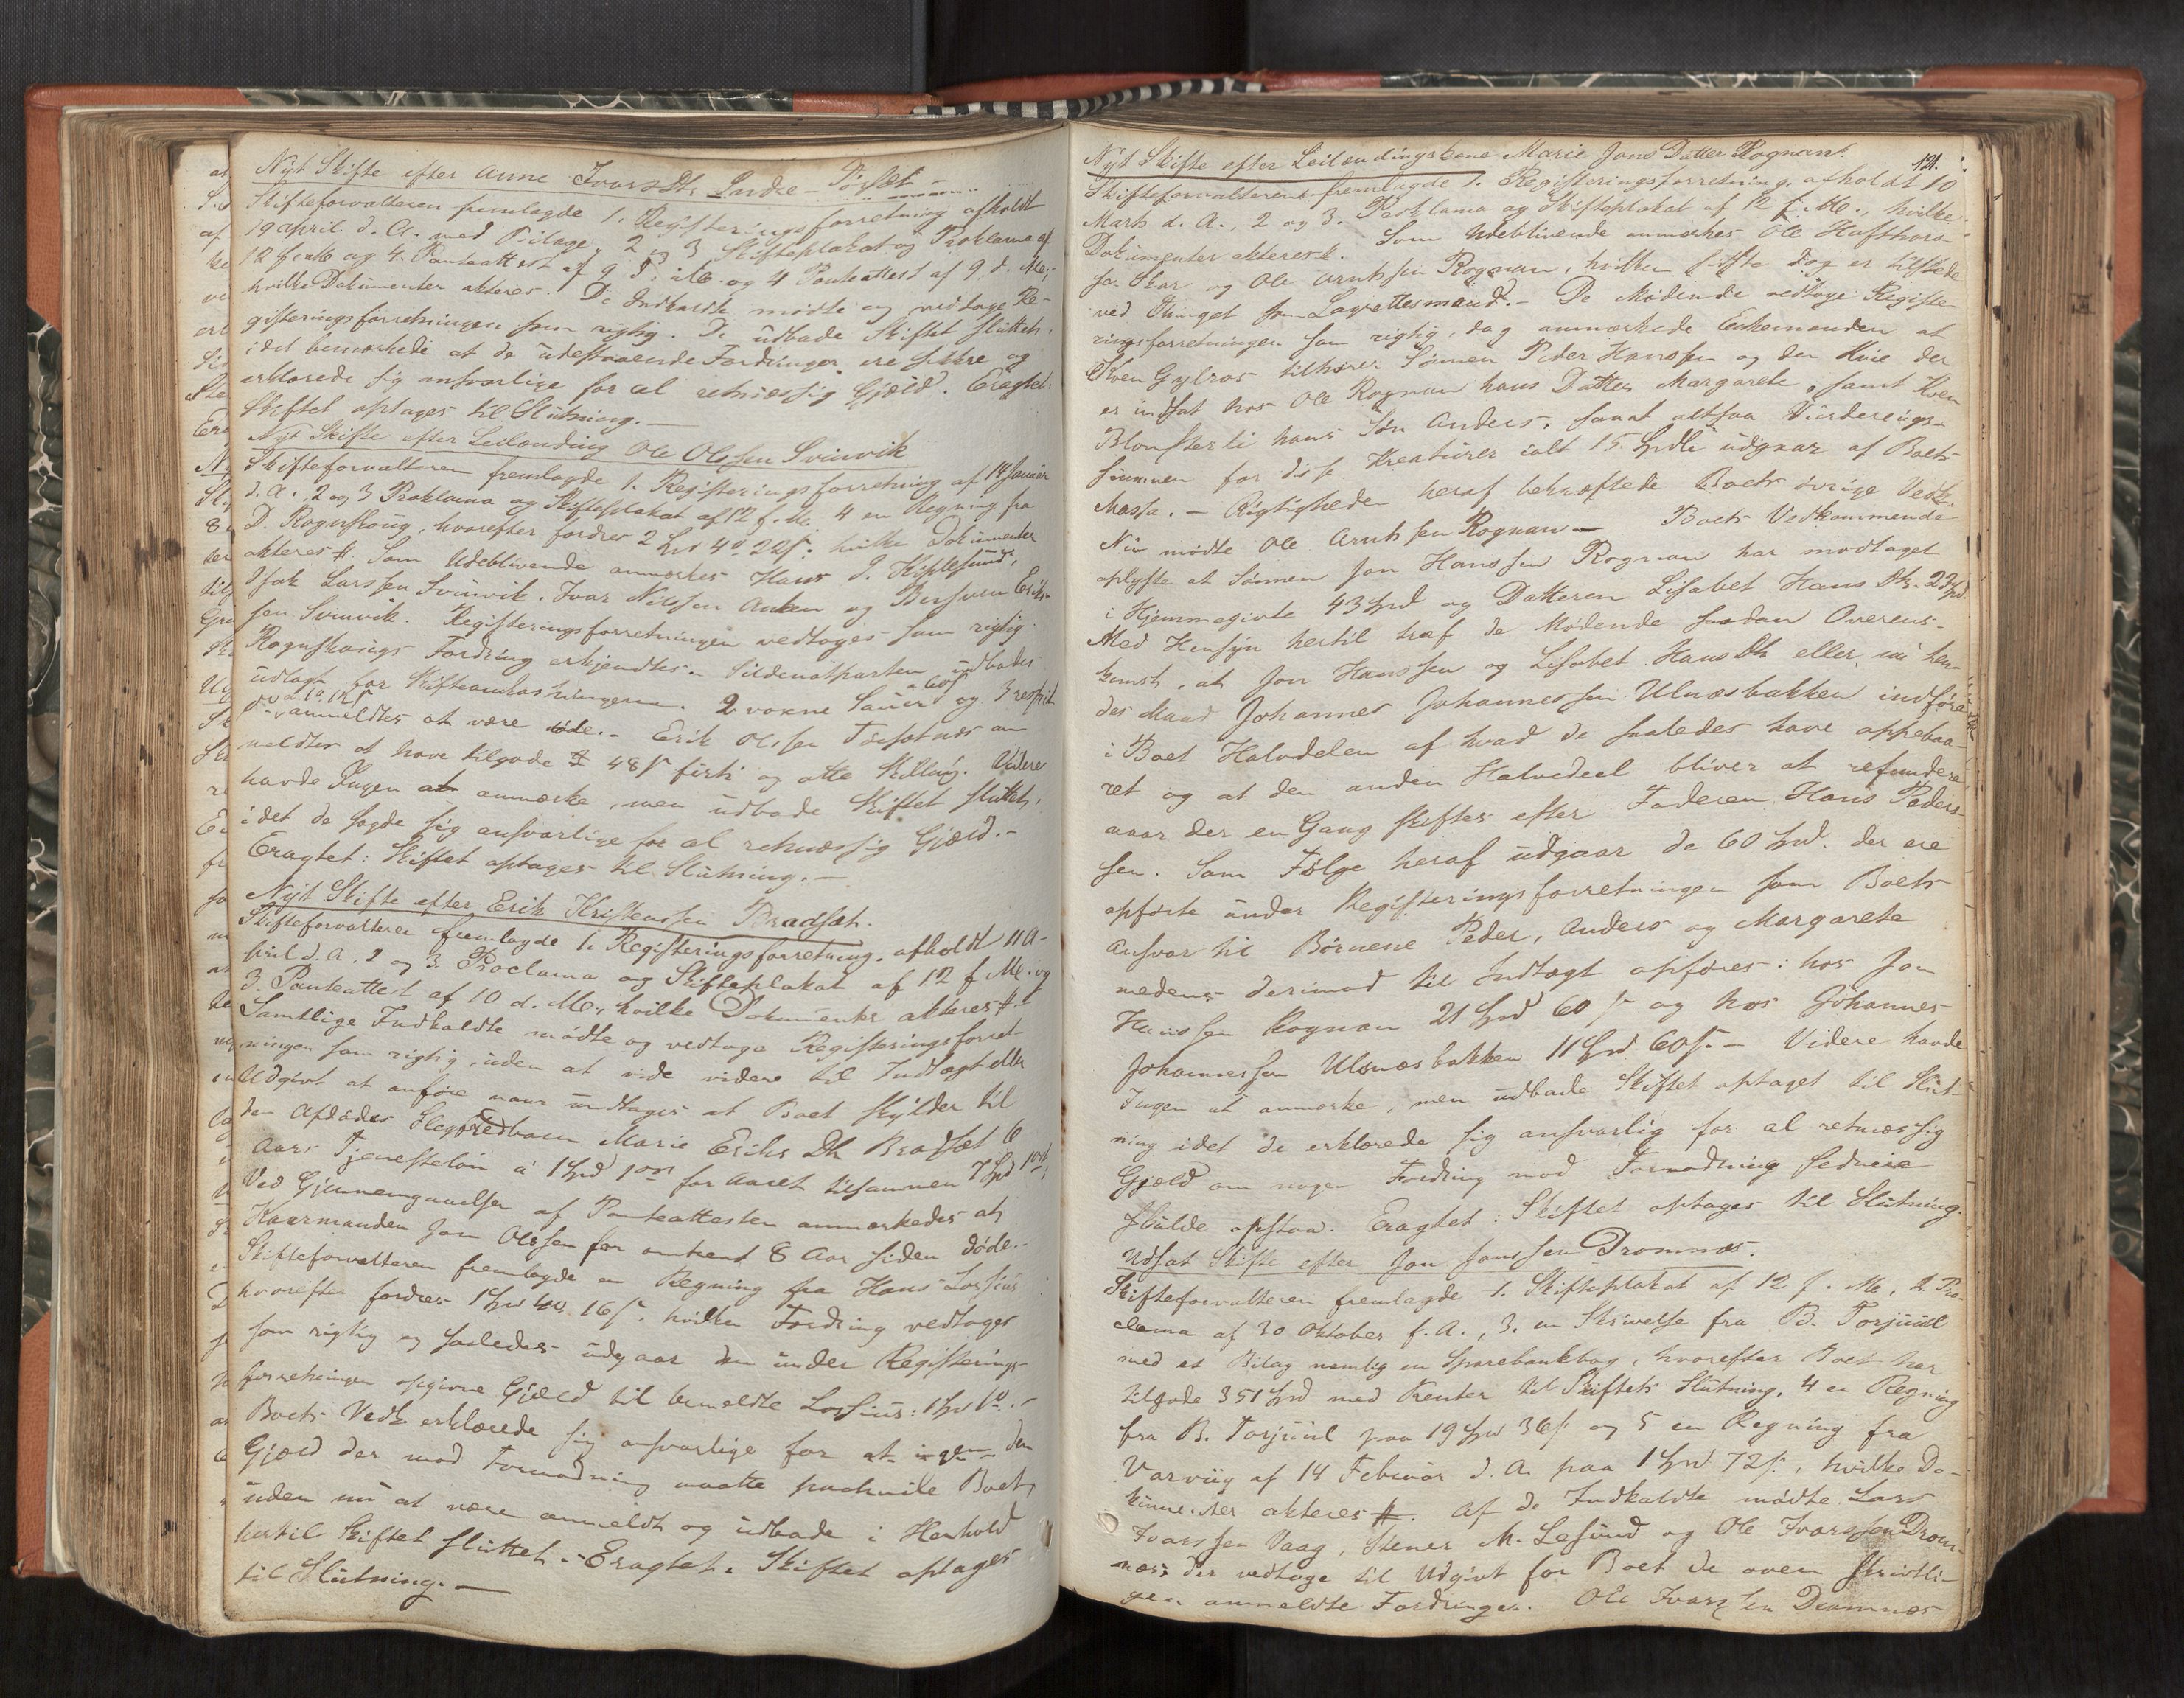 Nyt Skifte efter Anne Ivars Dtr Indre-Torset
Skifteforvalteren fremlagde 1. Registeringsforretning afholdt
19 april d. A. med Bilage, 2 og 3 Skifteplakat og Proklama af
12 f. Me og 4. Panteattest af 9 d. Me. og 4 Panteattest af 9. d. Me.,
hvilke Dokumenter akteres. De Indkaldte mødte og vedtoge Re-
gisteringsforretningen som rigtig. De udbade Skiftet sluttet,
idet bemærkede at de udestaaende Fordringer ere sikre og
erklærede sig ansvarlige for al retmæssig Gjæld. Eragtet:
Skiftet optages til Slutning.-
Nyt Skifte efter Leilænding Ole Olsen Svinvik
Skifteforvalteren fremlagde 1. Registeringsforretning af 14 Januar
d. A. 2 og 3 Proklama og Skifteplakat af 12 f. Me. 4 en Regning fra
D. Rognskoug, hvorefter fordres 2 Spd 4 22 s. hvilke Dokumenter
akteres #. Som Udeblivende anmærkes Hans J.
Isak Larssen Svinvik, Ivar Nilssen og Bersven Erik-
sen Svinvik. Registeringsforretningen vedtoges som rigtig.
Rognskougs Fordring erkjendtes.- Sildenotparten udbades
udlagt for Skifteomkostningerne. 2 voxne Sauer og 3
anmeldtes at være døde.- Erik Olssen an-
meldtes at have tilgode 48 s firti og otte Skilling. Videre
havde Ingen at anmærke, men udbade Skiftet sluttet,
idet de sagde sig ansvarlige for al retmæssig Gjæld.-
Eragtet: Skiftet optages til Slutning.-
Nyt Skifte efter Erik Kristenssen Bradsæt.
Skifteforvalteren fremlagde 1. Registeringsforretning, afholdt 11 A-
pril d. A. 2 og 3. Proclama og Skifteplakat af 12 f Me. og
3. Panteattest af 10 d. Me., hvilke Dokumenter akteres #.
Samtlige Indkaldte mødte og vedtoge Registeringsforret-
ningen som rigtig, uden at vide videre til Indtægt eller
Udgivt at anføre naar undtages at Boet skylder til
den Afdødes Slegfredbarn Marie Eriks Dtr Bradsæt 6
Aars Tjenesteløn á 1 Spd 1 ort for Aaret tilsammen 7 Spd 1 ort.
Ved Gjennemgaaelsen af Panteattesten anmærkedes at
Kaarmanden Jon Olssen for omtrent 8 Aar siden døde.-
Skifteforvalteren fremlagde en Regning fra Hans Lossius
hvorefter fordres 1 Spd 4 16 s, hvilken Fordring vedtoges
som rigtig og saaledes udgaar den under Registerings-
forretningen opgivne Gjæld til bemeldte Lossius: 1 Spd
Boets Vedk. erklærede sig ansvarlige for at ingen den
Gjæld der mod Formodning maatte paahvile Boet,
uden nu at være anmeldt og udbade i Henhold
hertil Skiftet sluttet.- Eragtet: Skiftet optages
til Slutning.-
121.
Nyt Skifte efter Leilændingskone Marie Jons Datter Rognan.
Skifteforvalteren fremlagde 1. Registeringsforretning, afholdt 10
Marts d. A., 2 og 3. Proklama og Skifteplakat af 12 f. Me., hvilke
Dokumenter akteres #. Som Udeblivende anmærkes Ole Hafthors-
sen Skar og Ole Arntssen Rognan, hvilken sidste dog er tilstede
ved Thinget som Lagrettesmand.- De Mødende vedtoge Registe-
ringsforretningen som rigtig, dog anmærkede Enkemanden at
Koen Gylros tilhører Sønnen Peder Hanssen og den Kvie der
er indsat hos Ole Rognan hans Datter Margarete, samt Koen
Blomsterli hans Søn Anders, saaat altsaa Vurderings-
summen for disse Kreaturer ialt 15 Spdlr udgaar af Boets
Massa.- Rigtigheden heraf bekræftede Boets øvrige Vedk.
Nu mødte Ole Arntssen Rognan- Boets Vedkommende
oplyste at Sønnen Jon Hanssen Rognan har modtaget
i Hjemmegivte 43 Spd og Datteren Lisabet Hans Dtr 23 Spd.
Med Hensyn hertil traf de Mødende saadan Overens-
komst, at Jon Hanssen og Lisabet Hans Dtr eller nu hen-
des Mand Johannes Johannessen Ulnæsbakken indføre
i Boet Halvdelen af hvad de saaledes have oppebaa-
ret og at den anden Halvdeel bliver at refundere
naar der en Gang skiftes efter Faderen Hans Peders-
sen. Som Følge heraf udgaar de 60 Spd. der ere
opførte under Registeringsforretningen som Boets
Ansvar til Børnene Peder, Anders og Margarete
medens derimod til Indtægt opføres: hos Jon
Hanssen Rognan 21 Spd 60 s og hos Johannes
Johannessen Ulsnæsbakken 11 Spd 60 s.- Videre havde
Ingen at anmærke, men udbade Skiftet optaget til Slut-
ning idet de erklærede sig ansvarlig for al retmæssig
Gjæld om nogen Fordring mod Formodning sednere
skulde opstaa. Eragtet: Skiftet optages til Slutning.
Udsat Skifte efter Jon Jonssen Dromnæs.
Skifteforvalteren fremlagde 1. Skifteplakat af 12 f. Me, 2. Pro-
clama af 30 Oktober f. A., 3. en Skrivelse fra B. Torjuul
med et Bilag nemlig en Sparebankbog, hvorefter Boet har
tilgode 351 Spd med Renter til Skiftets Slutning, 4 en Regning
fra B. Torjuul paa 19 Spd 36 s og 5 en Regning fra
Varviig af 14 Februar d. A. paa 1 Spd 72 s., hvilke Do-
kumenter akteres #. Af de Indkaldte mødte Lars
Ivarssen Vaag, Stener M. Lesund og Ole Ivarssen Drom-
næs, der vedtoge til Udgivt for Boet de oven skriftli-
gen anmeldte Fordringer. Ole Ivarssen Dromnæs